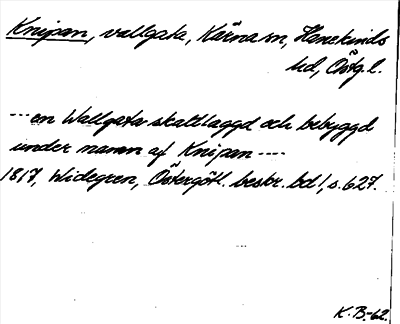 Knipan, vallgata, Kärna sn, Hanekinds
hd, Östg.l.
---en Wallgata skattlaggd och bebyggd
under namn af Knipan ----
1817, Widegren, Östergötl. beskr. bd 1, s. 627.
K. B.-62.